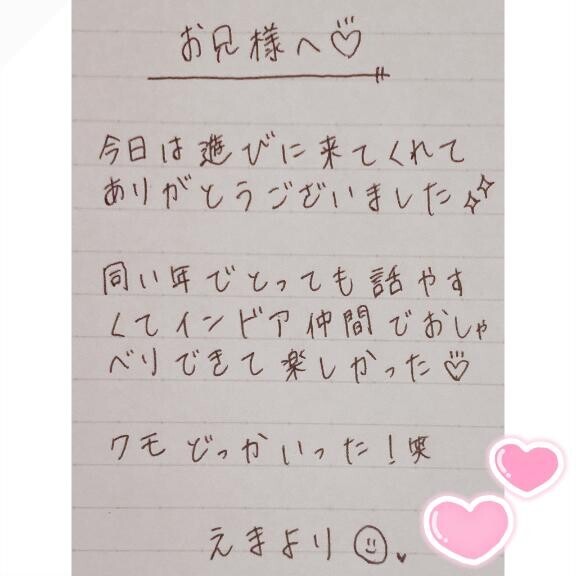 お兄様へ♡
今日は遊びに来てくれて
ありがとうございました✨
同い年でとっても話やす
くてインドア仲間でおしゃ
べりできて楽しかった♡
クモどっかいった！笑
えまより☺♥